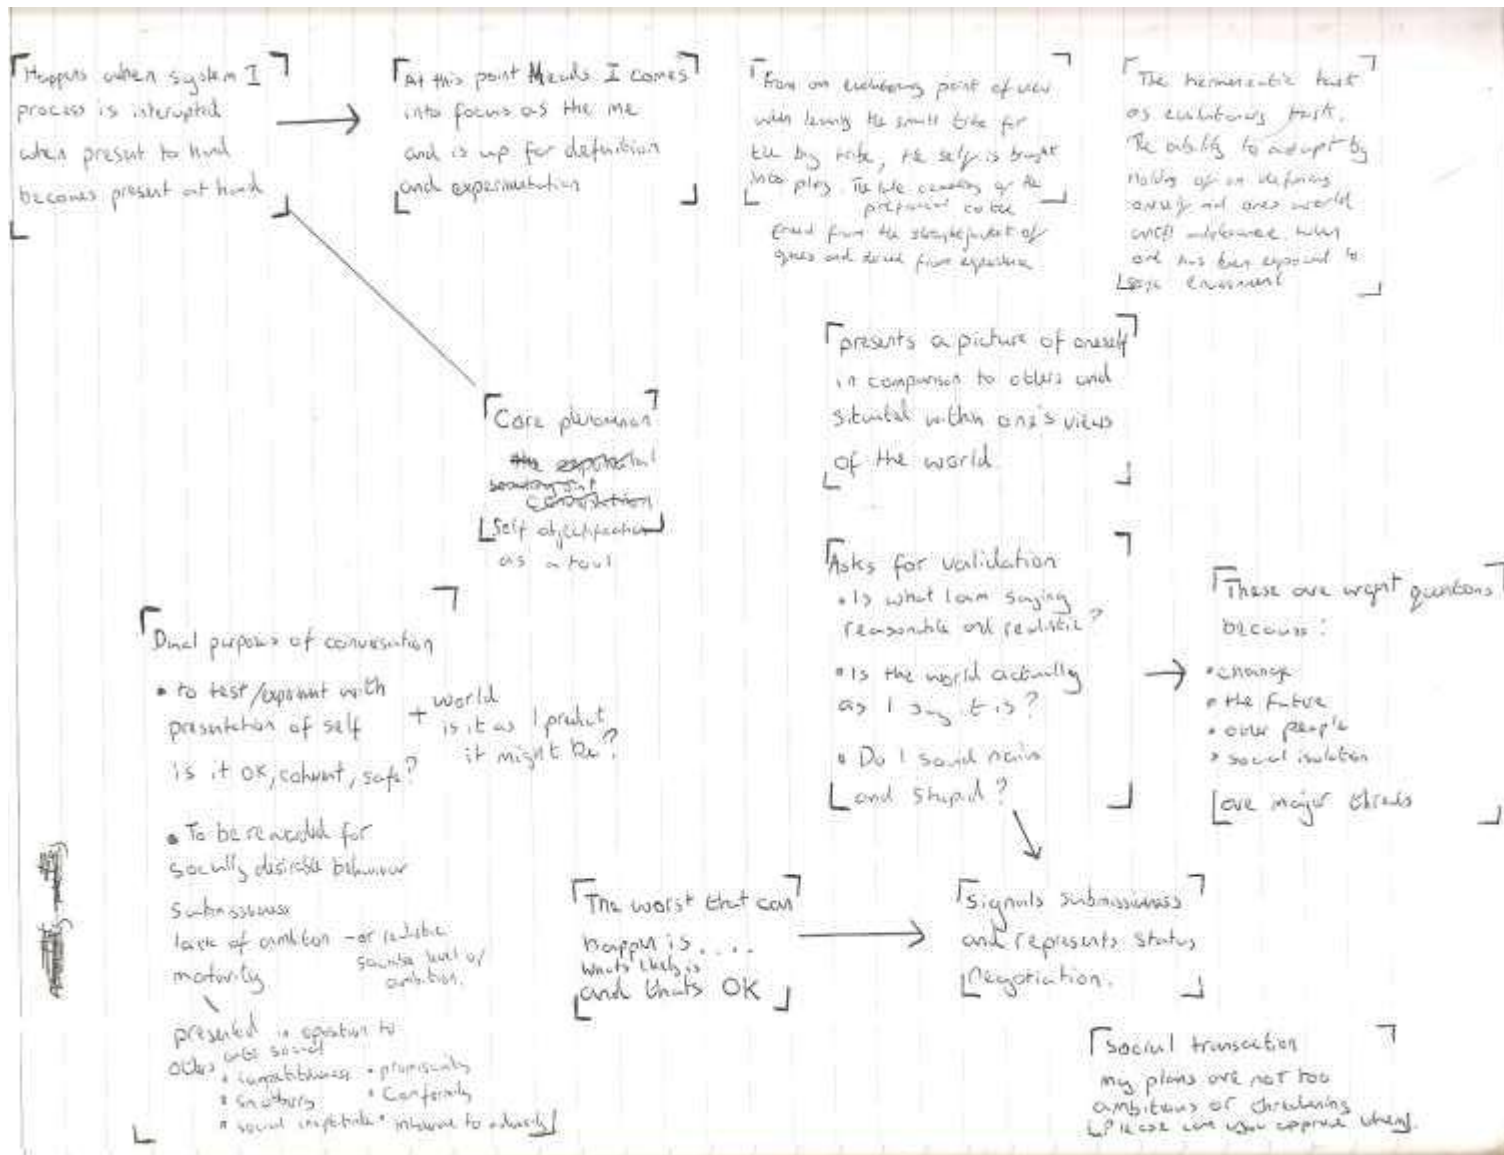 Happens when system I
process is interupted
when present to hand
becomes present at hand
At this point Meads I comes
into focus as the me
and is up for definition
and experimentation
From an evolutionary point of view
when leaving the small tribe for
the big tribe, the self is brought
into play. The late of the
prefrontal cortex
freed from the straightjacket of
genes and from experience
The hermeneutic task
as evolutionary task.
The ability to adapt by
holding off on defining
oneself and ones world
until when
one has been exposed to
environment
presents a picture of oneself
in comparison to others and
situated within one's views
of the world.
Core phenomenon
the
conversation
Self objectification
as a tool
Asks for validation
• Is what I am saying
reasonable and realistic?
• Is the world actually
as I say it is?
• Do I sound naive
and stupid?
These are urgent questions
because:
• change
• the future
• other people
• social isolation
are major threats
Dual purposes of conversation
• to test/experiment with
presentation of self
is it OK, coherent, safe?
+ world
is it as I predict
it might be?
• To be rewarded for
socially desirable behaviour
submissiveness
lack of ambition - or realistic
level of
ambition.
maturity
presented in opposition to
others social
• competitiveness • promiscuity
• snobbery • Conformity
• social ineptitude • to adversity
The worst that can
happen is....
whats likely is
and thats OK
Signals submissiveness
and represents status
negotiation.
Social transaction
my plans are not too
ambitious or threatening
Please can you approve them